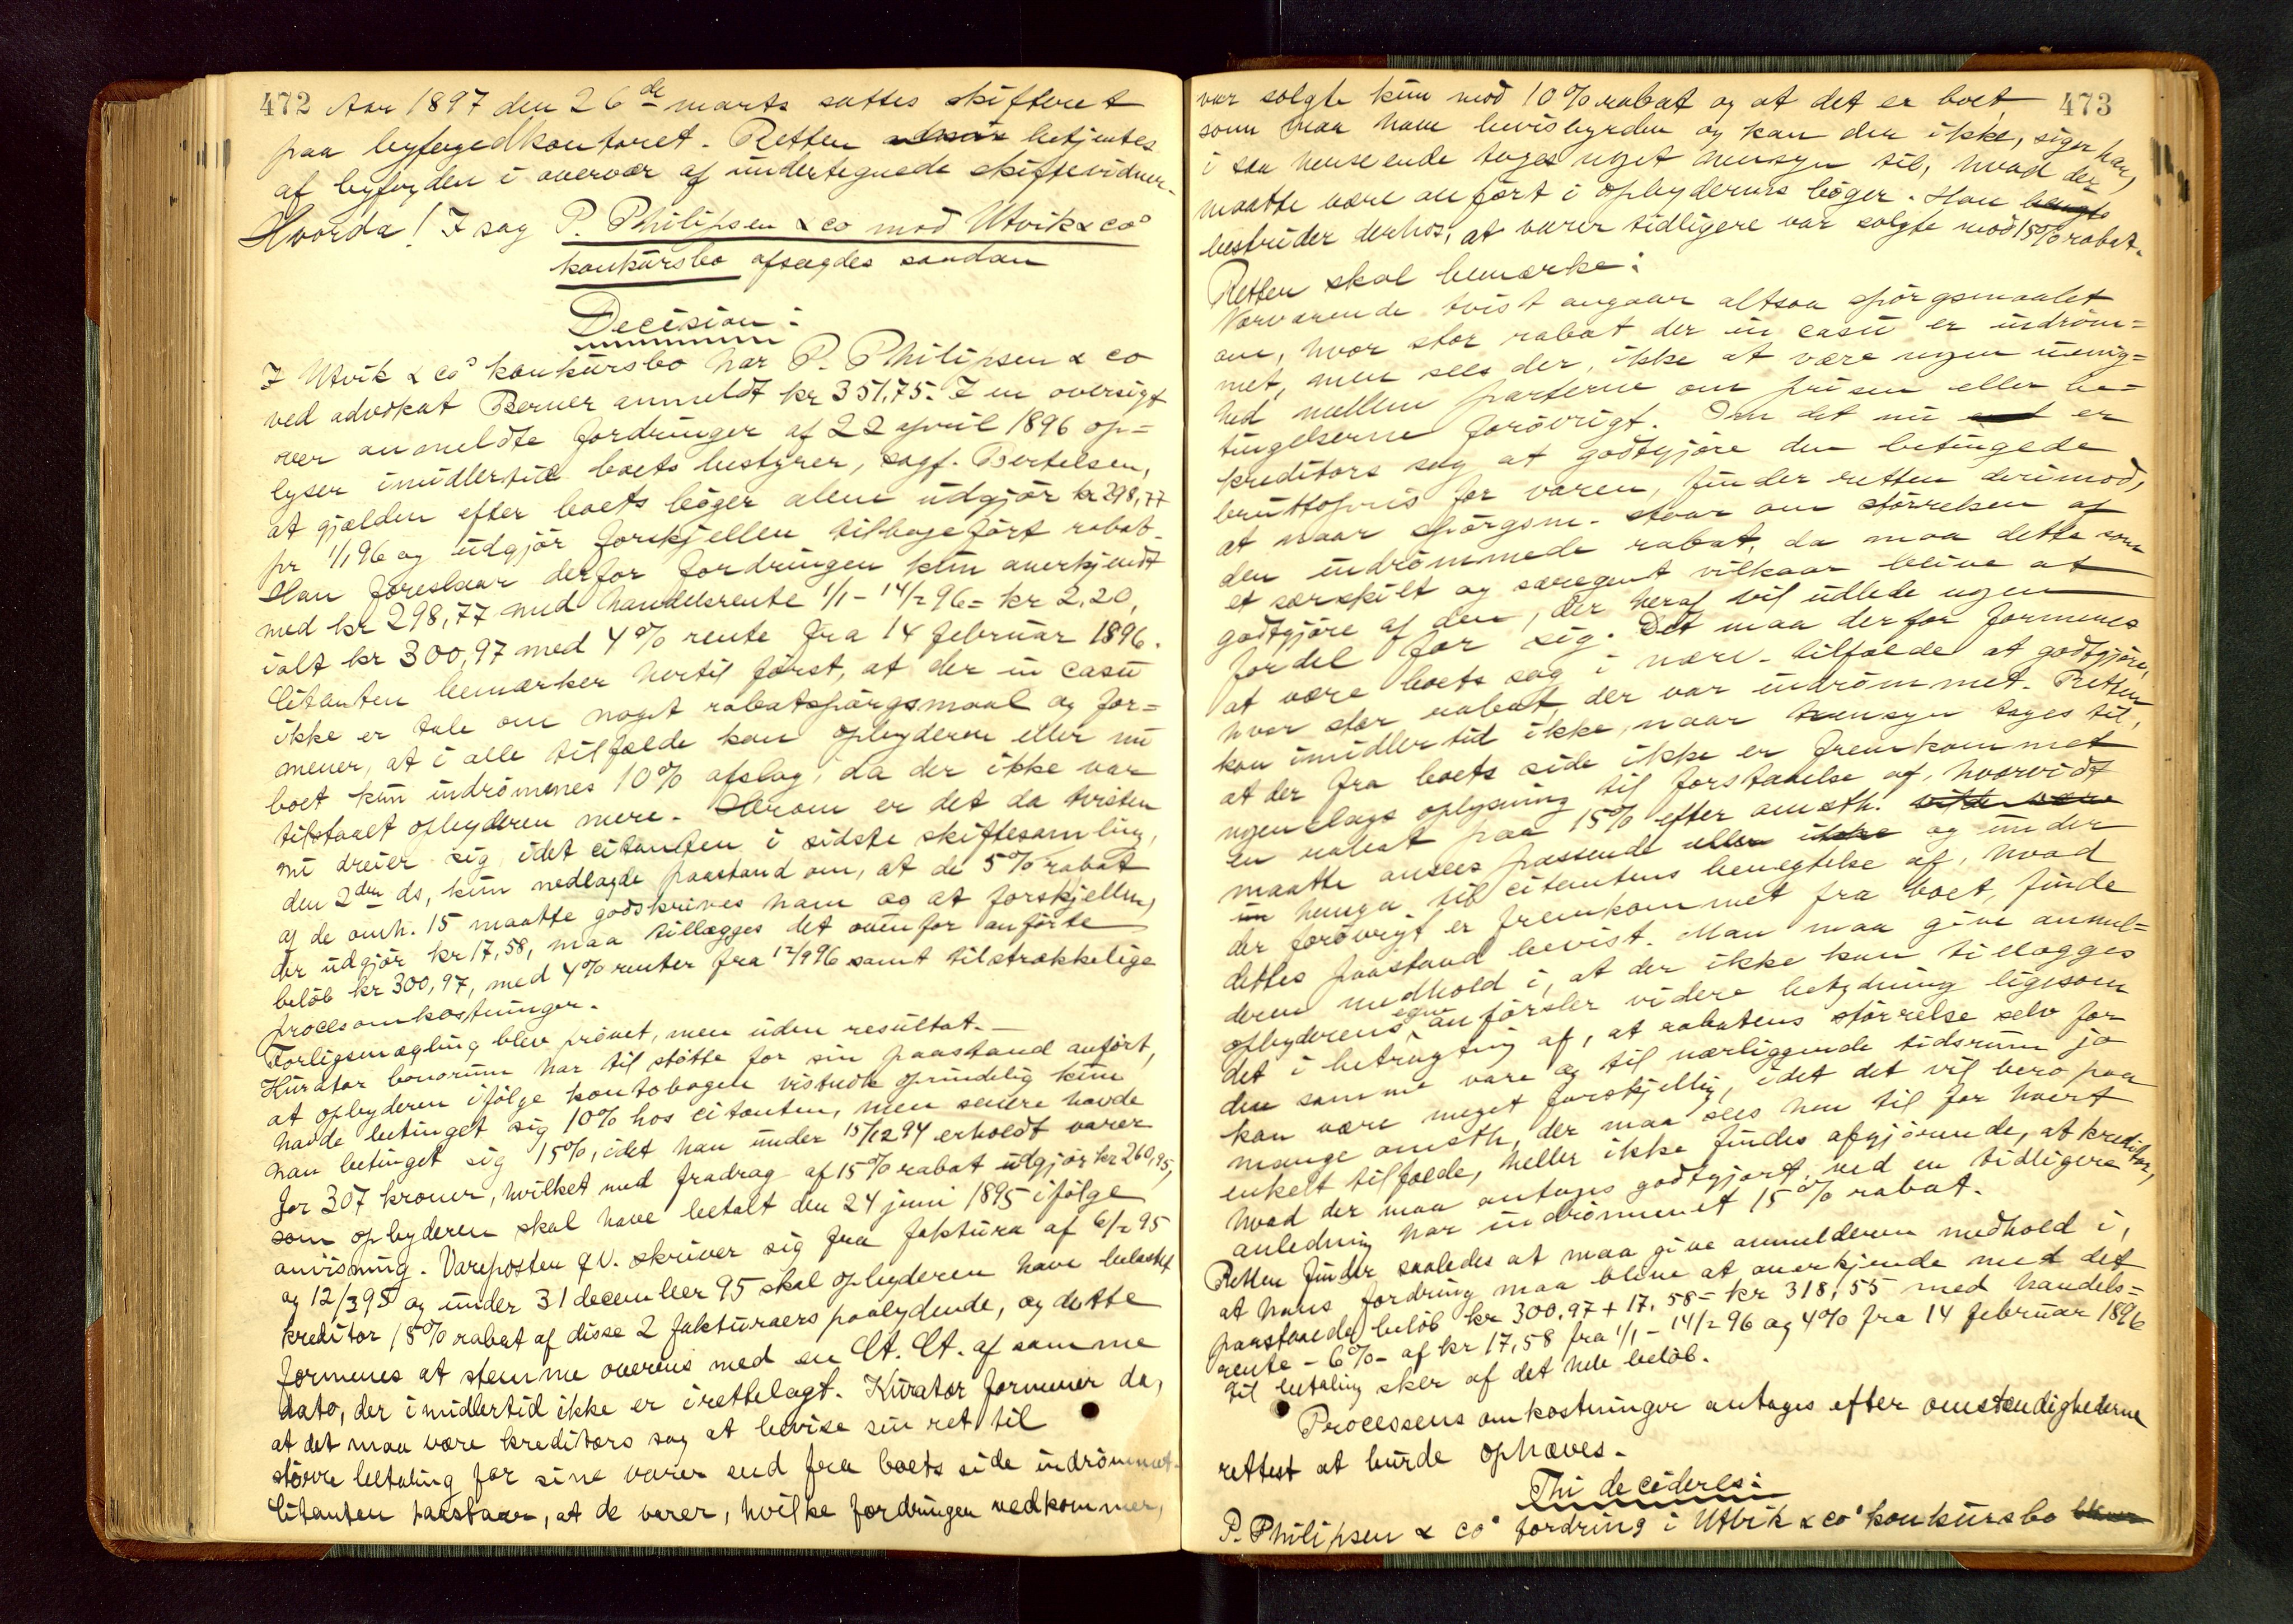 472 Aar 1897 den 26de marts sattes skifteret
paa byfogedkontoret. Retten betjentes
af byfogden i overvær af undertegnede skiftevidner.
Hvorda! I sag P. Philipsen & co mod Utvik & co's
konkursbo afsagdes saadan
Decision:
I Utvik & co's konkursbo har P. Philipsen & co
ved advokat Berner anmeldt kr 351,75. I en oversigt
over anmeldte fordringer af 22 april 1896 op=
lyser imidlertid boets bestyrer, sagf. Bertelsen,
at gjælden efter boets bøger alene udgjør kr 298,77
pr 1/1 96 og udgjør forskjellen tilbageført rabat.
Han foreslaar derfor fordringen kun anerkjendt
med kr 298,77 med handelsrente 1/1 - 14/2 96 = kr 2,20,
ialt kr 300,97 med 4% rente fra 14 februar 1896.
Citanten bemærker hertil først, at der in casu
ikke er tale om noget rabatspørgsmaal og for=
mener, at i alle tilfælde kan opbyderen eller nu
boet kun indrømmes 10% afslag, da der ikke var
tilstaaet opbyderen mere. Herom er det da tvisten
nu dreier sig, idet citanten i sidste skiftesamling,
den 2den ds, kun nedlagde paastand om, at de 5% rabat
af de omh. 15 maatte godskrives ham og at forskjellen,
der udgjør kr 17,58, maa tillægges det ovenfor anførte
beløb kr 300,97, med 4% renter fra 14/2 96 samt tilstrækkelige
procesomkostninger.
Forligsmægling blev prøvet, men uden resultat.
Kurator bonorum har til støtte for sin paastand anført,
at opbyderen ifølge kontobogen vistnok oprindelig kun
havde betinget sig 10% hos citanten, men senere havde
han betinget sig 15%, idet han under 15/12 94 erholdt varer
for 307 kroner, hvilket med fradrag af 15% rabat udgjør kr 260,95,
som opbyderen skal have betalt den 24 juni 1895 ifølge
anvisning. Vareposten qv. skriver sig fra faktura af 6/2 95
og 12/3 95 og under 31 december 95 skal opbyderen have belastet
kreditor 15% rabat af disse 2 fakturaers paalydende, og dette
formenes at stemme overens med en Ct. Ct. af samme
dato, der imidlertid ikke er irettelagt. Kurator formener da,
at det maa være kreditors sag at bevise sin ret til
større betaling for sine varer end fra boets side indrømmet.
Citanten paastaar, at de varer, hvilke fordringen vedkommer,
473
var solgte kun mod 10% rabat og at det er boet,
som maa have bevisbyrden og kan der ikke, siger han,
i saa henseende tages noget hensyn til, hvad der
maatte være anført i opbyderens bøger. Han
bestrider derhos, at varer tidligere var solgte mod 15% rabat.
Retten skal bemærke:
Nærværende tvist angaar altsaa spørgsmaalet
om, hvor stor rabat der in casu er indrøm=
met, men sees der ikke at være nogen uenig=
hed mellem parterne om prisen eller be=
tingelserne forøvrigt. Om det nu er
kreditors sag at godtgjøre den betingede
bruttopris for varen, finder retten derimod,
at naar spørgsm. staar om størrelsen af
den indrømmede rabat, da maa dette som
et særskilt og særegent vilkaar blive at
godtgjøre af den, der heraf vil udlede nogen
fordel for sig. Det maa derfor formenes
at være boets sag i nærv. tilfælde at godtgjøre,
hvor stor rabat der var indrømmet. Retten
kan imidlertid ikke, naar hensyn tages til,
at der fra boets side ikke er fremkommet
nogenslags oplysning til forstaaelse af, hvorvidt
en rabat paa 15% efter omsth.
maatte ansees passende og under
hensyn til citantens benegtelse af, hvad
der forøvrigt er fremkommet fra boet, finde
dettes paastand bevist. Man maa give anmel=
deren medhold i, at der ikke kan tillægges
opbyderens egne anførsler videre betydning ligesom
det i betragtning af, at rabatens størrelse selv for
den samme vare og til nærliggende tidsrum jo
kan være meget forskjellig, idet det vil bero paa
mange omsth, der maa sees hen til for hvert
enkelt tilfælde, heller ikke findes afgjørende, at kreditor,
hvad der maa antages godtgjort, ved en tidligere
anledning har indrømmet 15% rabat.
Retten finder saaledes at maa give anmelderen medhold i,
at hans fordring maa blive at anerkjende med det
paastaaede beløb kr 300.97 + 17,58 = kr 318,55 med handels=
rente - 6% - af kr 17,58 fra 1/1 - 14/2 96 og 4% fra 14 februar 1896
til betaling sker af det hele beløb.
Processens omkostninger antages efter omstendighederne
rettest at burde ophæves.
Thi decideres:
P. Philipsen & co's fordring i Utvik & co's konkursbo